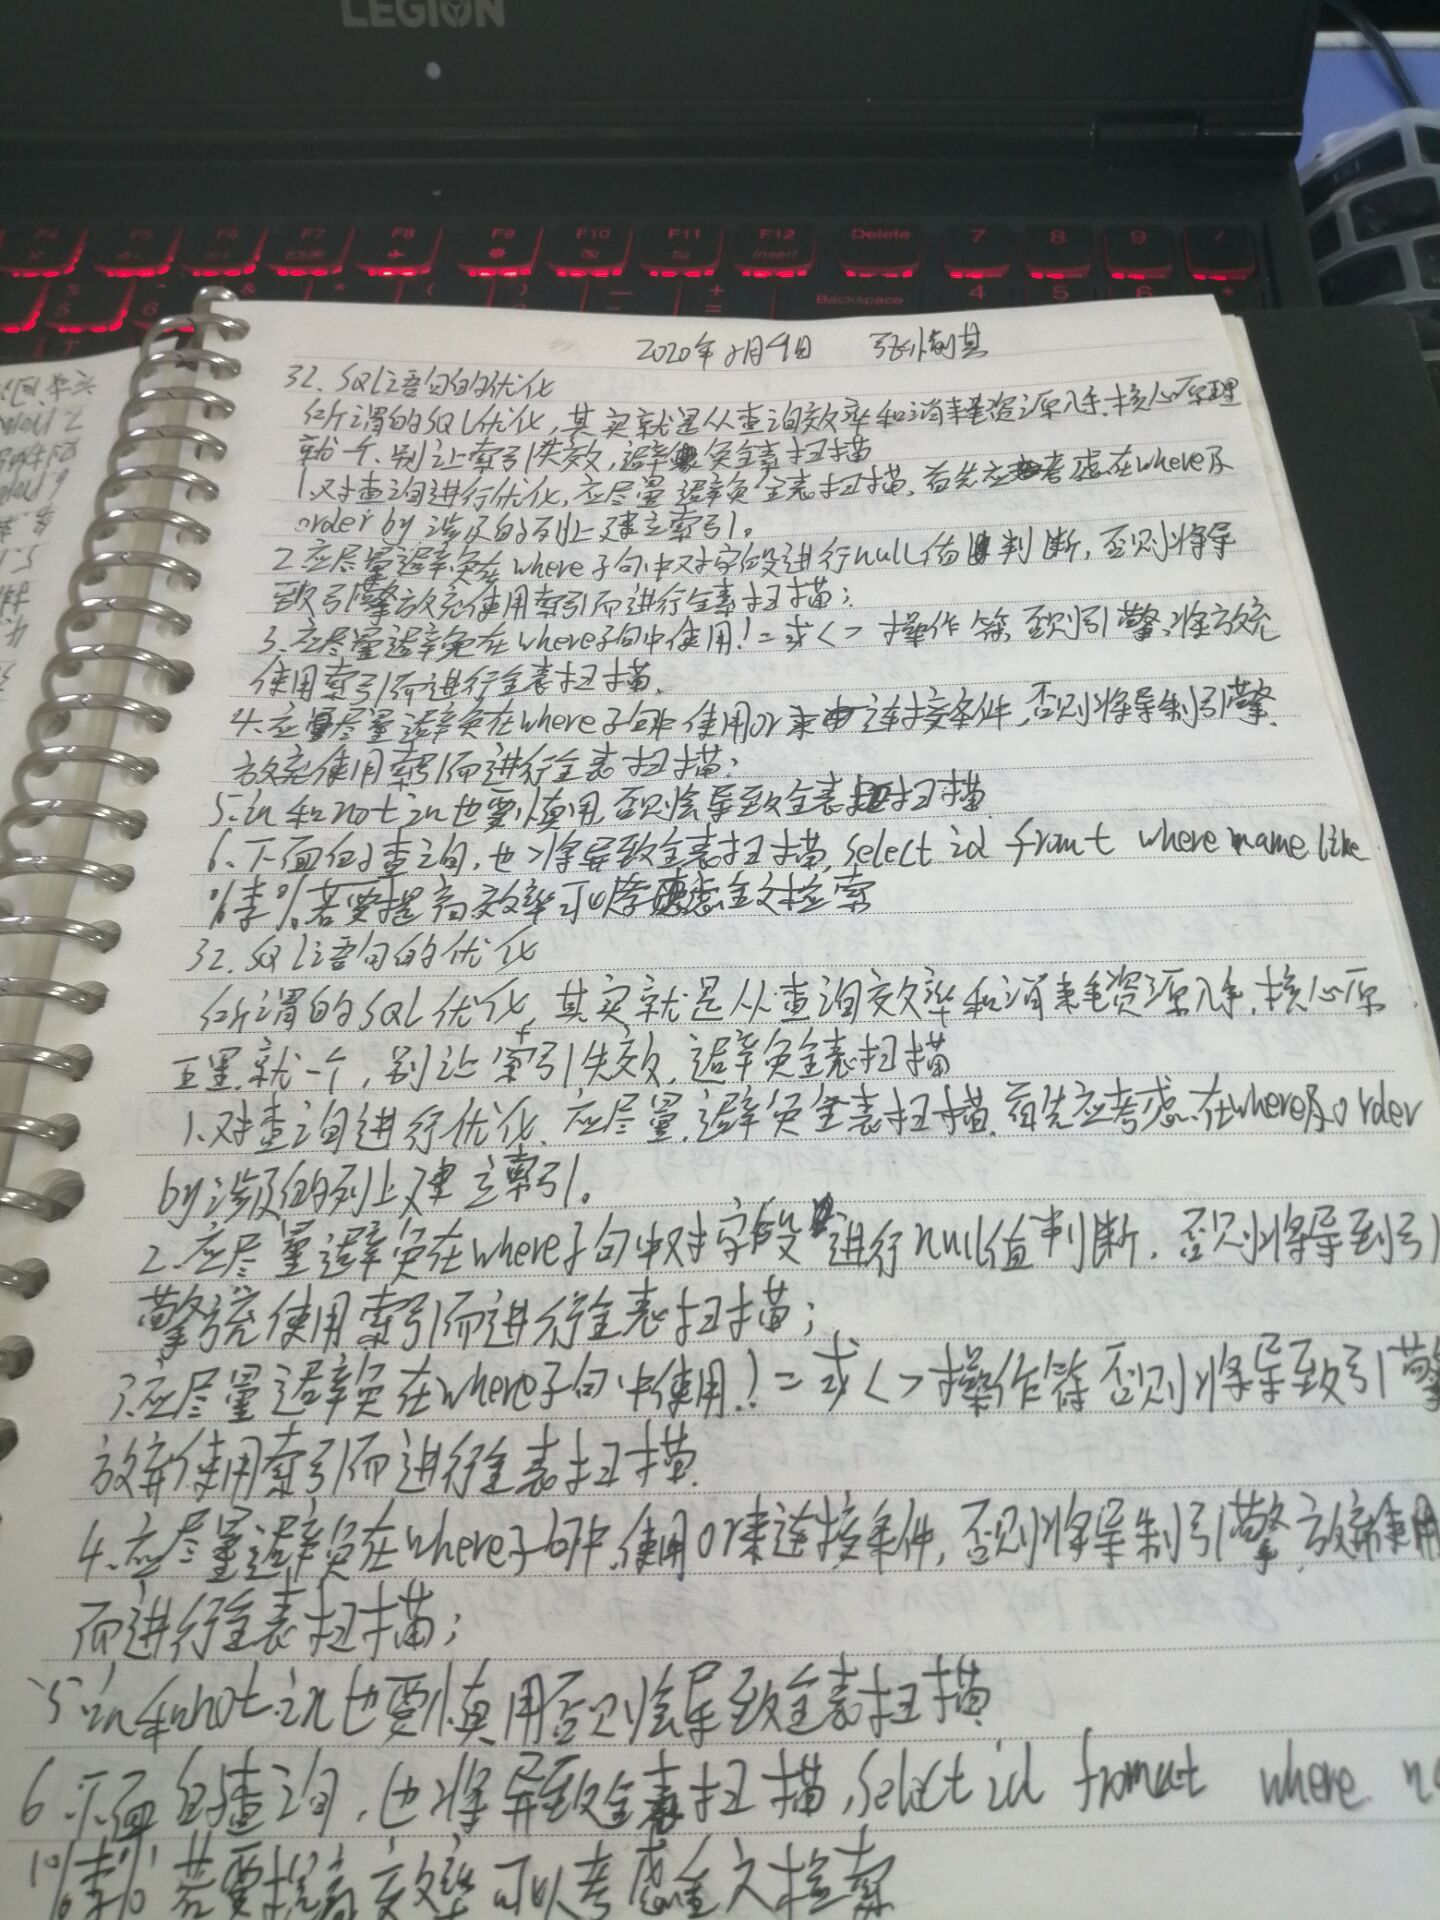 LEGION
F4 F5 F6 F7 F8 F9 F10 F11 F12 Delete 7 8 9 /
Insert
5 6 Backspace 4 5 6 +
2020年2月4日
32. SQL语句的优化
所谓的SQL优化,其实就是从查询效率和消耗资源入手,核心原理
就一个,别让索引失效,避免全表扫描
1.对查询进行优化,应尽量避免全表扫描,首先应考虑在where及
order by 涉及的列上建立索引。
2.应尽量避免在where子句中对字段进行null值判断,否则将导
致引擎放弃使用索引而进行全表扫描;
3.应尽量避免在where子句中使用!=或<>操作符,否则引擎将放弃
使用索引而进行全表扫描.
4.应尽量避免在where子句中使用or来连接条件,否则将导制引擎
放弃使用索引而进行全表扫描;
5.in和not in也要慎用,否则会导致全表扫描
6.下面的查询,也将导致全表扫描,select id from t where name like
%李%若要提高效率可以考虑全文检索
32. SQL语句的优化
所谓的SQL优化,其实就是从查询效率和消耗资源入手,核心原
理就一个,别让索引失效,避免全表扫描
1.对查询进行优化,应尽量避免全表扫描,首先应考虑在where及order
by涉及的列上建立索引。
2.应尽量避免在where子句中对字段进行null值判断,否则将导到引
擎使用索引而进行全表扫描;
3.应尽量避免在where子句中使用!=或<>操作符否则将导致引擎
放弃使用索引而进行全表扫描.
4.应尽量避免在where子句中使用or来连接条件,否则将导制引擎放弃使用
而进行全表扫描;
5.in和not in也要慎用否则会导致全表扫描
6.下面的查询,也将导致全表扫描,select id from t where
%李%若要提高效率可以考虑全文检索